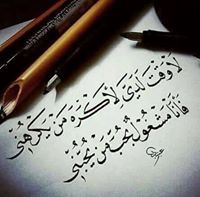 لَا وَقْتَ لَدَيَّ لِأَكْرَهَ مَنْ يَكْرَهُنِي
فَأَنَا مَشْغُولٌ بِحُبِّ مَنْ يُحِبُّنِي